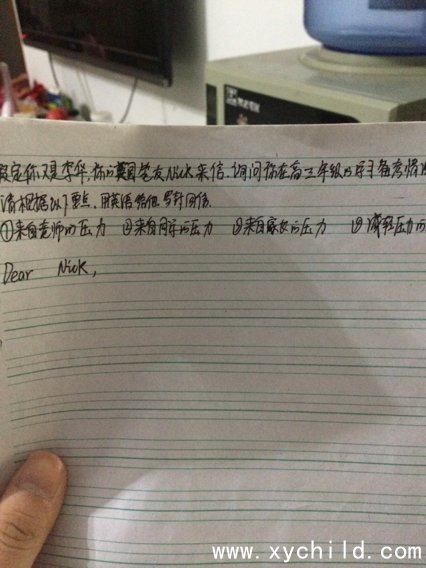 假定你是李华,你的英国笔友Nick来信,询问你在高三年级的学习备考情况
请根据以下要点,用英语给他写封回信.
①来自老师的压力 ②来自同学的压力 ③来自家长的压力 ④减轻压力的
Dear Nick,
www.xychild.com